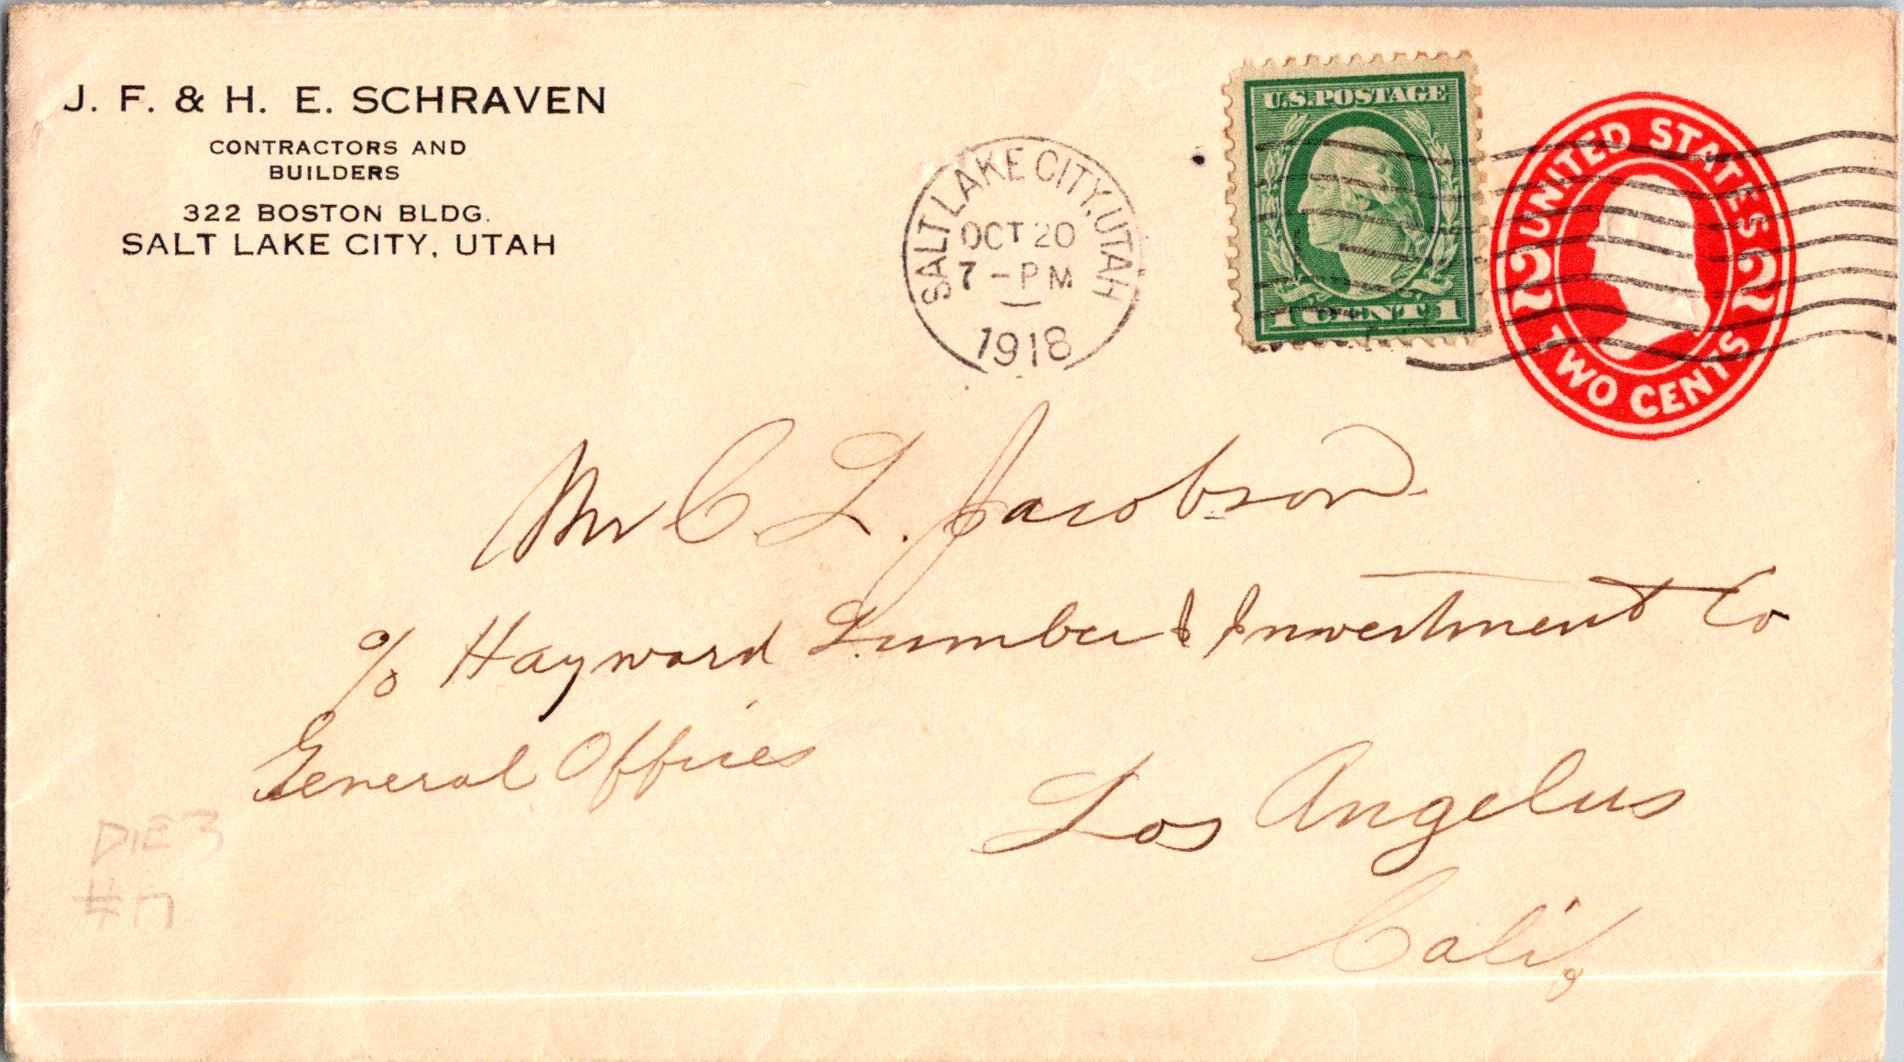 J. F. & H. E. SCHRAVEN
CONTRACTORS AND
BUILDERS
322 BOSTON BLDG.
SALT LAKE CITY, UTAH
SALT LAKE CITY, UTAH
OCT 20
7 - PM
1918
U.S. POSTAGE
1 CENT 1
UNITED STATES
2 2
TWO CENTS
Mr C. L. Jacobson
c/o Hayward Lumber & Investment Co
General Offices
Los Angelus
Calif
DIE 3
#17